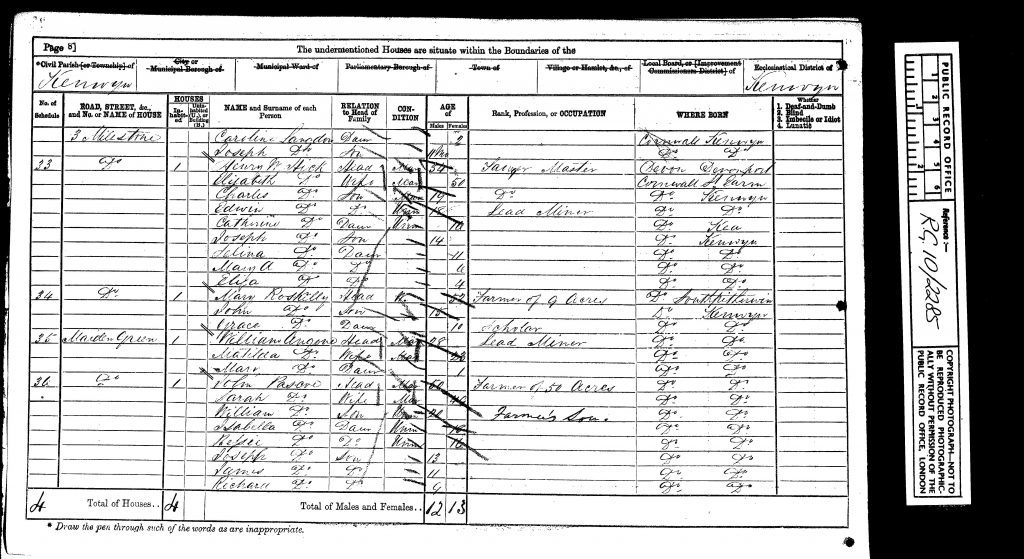 Page 8]
The undermentioned Houses are situate within the Boundaries of the
*Civil Parish [or Township] of
City or Municipal Borough of
Municipal Ward of
Parliamentary Borough of
Town of
Village or Hamlet, &c., of
Local Board, or [Improvement Commissioners District] of
Ecclesiastical District of
Kenwyn
Kenwyn
No. of Schedule
ROAD, STREET, &c., and No. or NAME of HOUSE
HOUSES
In-habited
Uninhabited (U.), or Building (B.)
NAME and Surname of each Person
RELATION to Head of Family
CON-DITION
AGE of
Males
Females
Rank, Profession, or OCCUPATION
WHERE BORN
Whether
1. Deaf-and-Dumb
2. Blind
3. Imbecile or Idiot
4. Lunatic
3 Milestone Caroline Langdon Daur 2 Cornwall Kenwyn
Joseph Do Son Do Do
33 Do 1 Henry W Hick Head Mar 54 Master Devon Devonport
Elizabeth Do Wife Mar 50 Cornwall St
Charles Do Son 19 Do Do Kenwyn
Edwin Do Do Unm 18 Lead Miner Do Do
Catherine Do Daur Unm 16 Do Kea
Joseph Do Son 14 Do Kenwyn
Selina Do Daur 11 Do Do
Mary A Do Do Do Do
Eliza Do Do 4 Do Do
34 Do 1 Mary Roskilly Head 52 Farmer of 9 Acres Do
John Do Son 13 Do Kenwyn
Grace Do Daur 10 Scholar Do Do
35 Maiden Green 1 William Head Mar 28 Lead Miner Do Do
Matilda Do Wife Mar Do Do
Mary Do Daur 1 Do Do
36 Do 1 John Pascoe Head Mar 50 Farmer of 50 Acres Do Do
Sarah Do Wife Mar Do Do
William Do Son Unm 20 Farmer's Son. Do Do
Isabella Do Daur Unm 18 Do Do
Bessie Do Do Unm 16 Do Do
Joseph Do Son 13 Do Do
James Do Do 11 Do Do
Richard Do Do 9 Do Do
4 Total of Houses.. 4 Total of Males and Females.. 12 13
* Draw the pen through such of the words as are inappropriate.
PUBLIC RECORD OFFICE
1 2 3 4 5 6
Reference :—
RG 10/2285
COPYRIGHT PHOTOGRAPH—NOT TO
BE REPRODUCED PHOTOGRAPHIC-
ALLY WITHOUT PERMISSION OF THE
PUBLIC RECORD OFFICE, LONDON